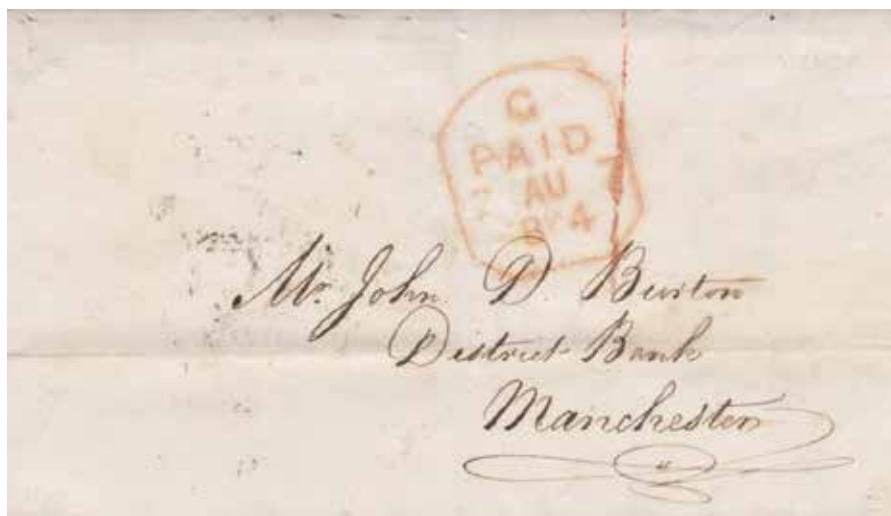 G
PAID
AU
Mr. John D. Burton
District Bank
Manchester